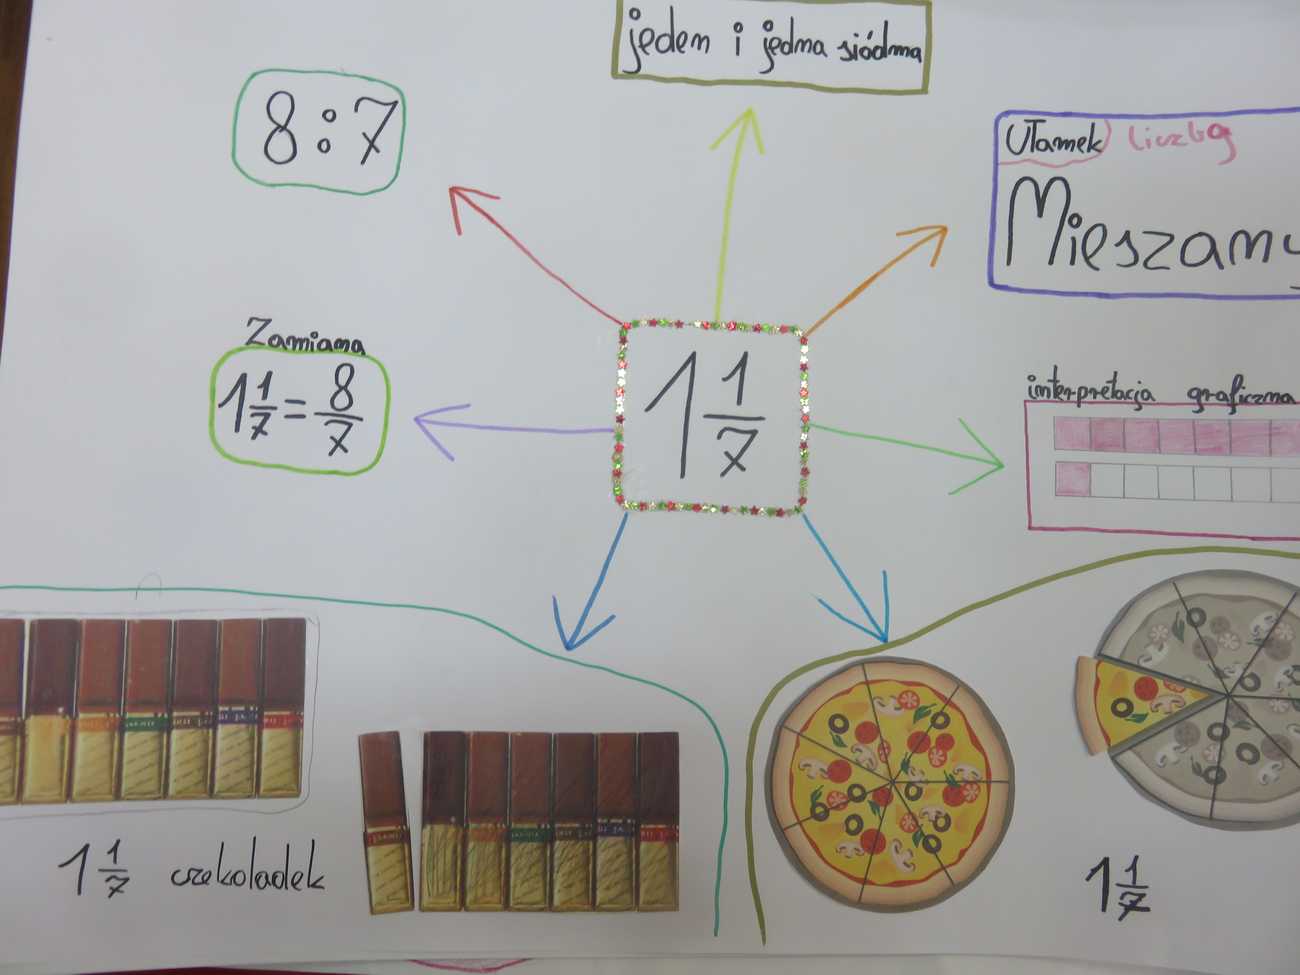 jeden i jedna siódma
8:7
Ułamek liczbą
Mieszany
Zamiana
1 1/7 = 8/7
1 1/7
interpretacja graficzna
1 1/7 czekoladek
1 1/7